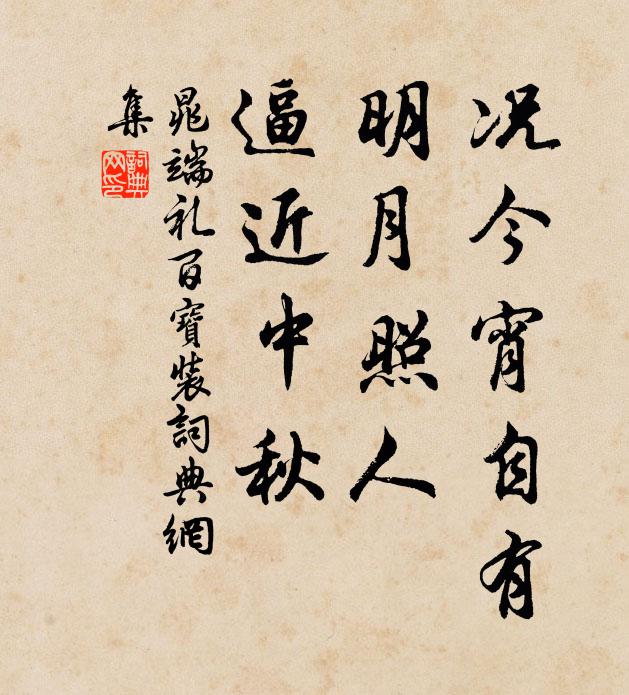 况今宵自有
明月照人
逼近中秋
晁端礼百寳裝詞典網
集
詞典
网印